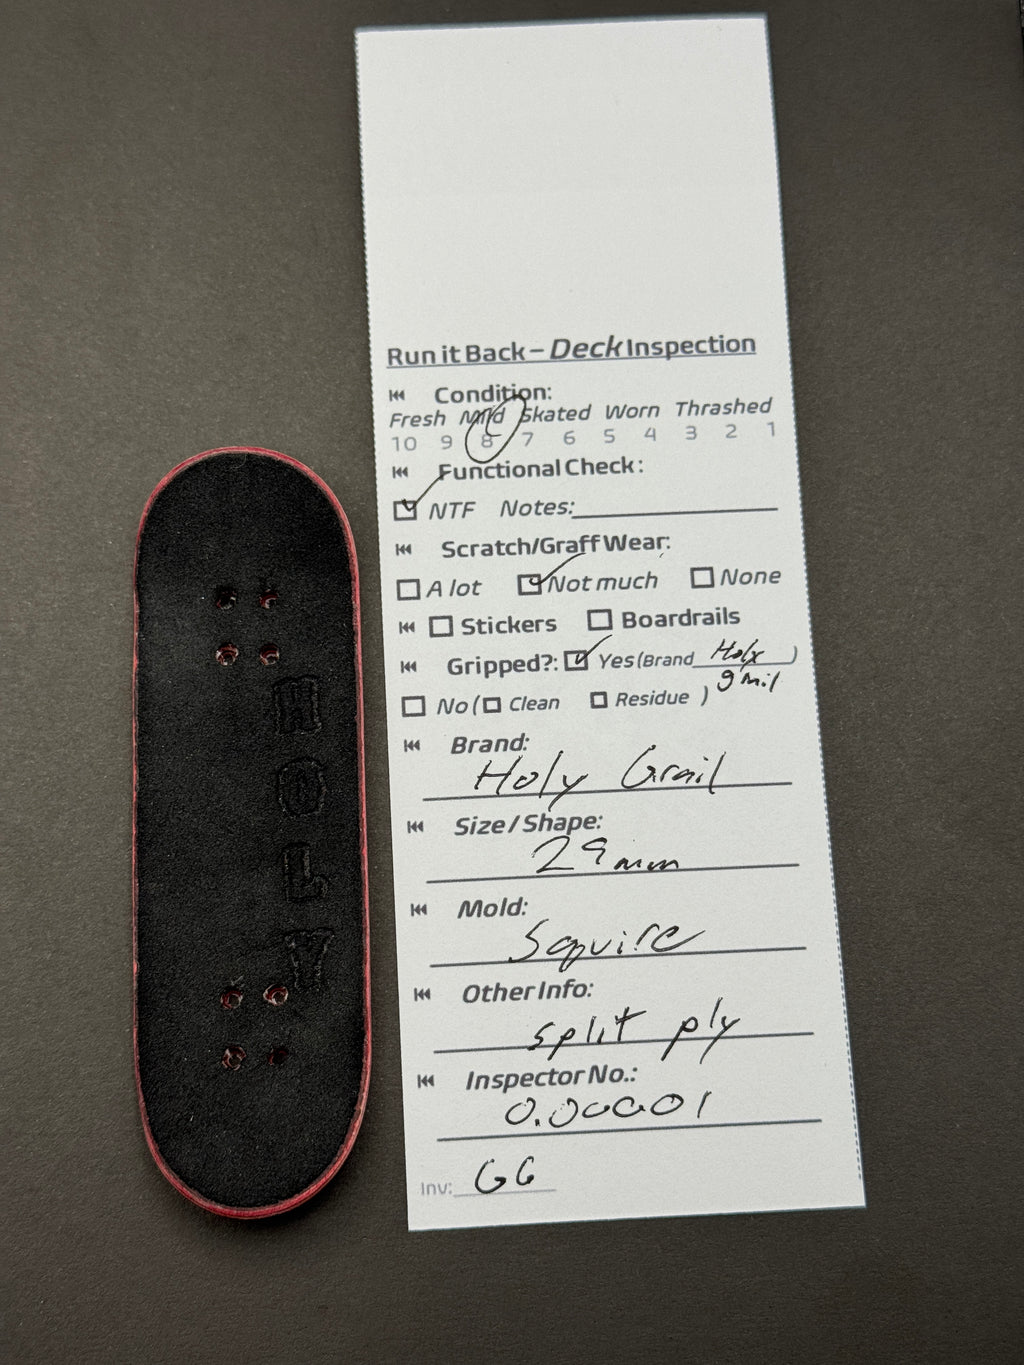 Run it Back – Deck Inspection
Condition:
Fresh Mild Skated Worn Thrashed
10 9 8 7 6 5 4 3 2 1
Functional Check:
NTF Notes:
Scratch/Graff Wear:
A lot Not much None
Stickers Boardrails
Gripped?: Yes (Brand Holy )
9 mil
No ( Clean Residue )
Brand:
Holy Grail
Size / Shape:
29 mm
Mold:
Squire
Other Info:
split ply
Inspector No.:
0.00001
Inv: GG
H
O
L
Y